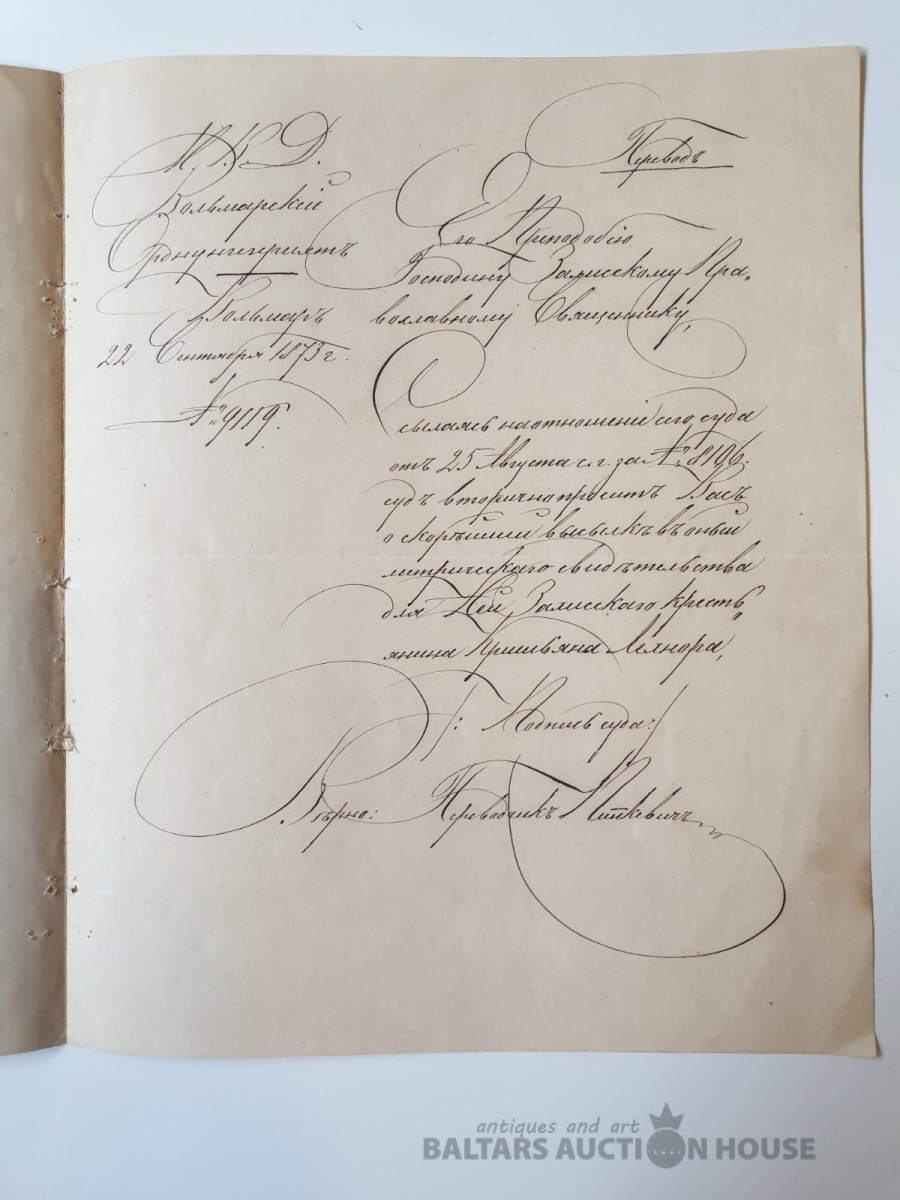 М. В. Д.
Вольмарскій
Орднунгсгерихтъ
Вольмаръ
22 Сентября 1873 г.
№ 9119.
Переводъ
Его Преподобію
Господину Залисскому Пра„
вославному Священнику,
Ссылаясь на отношеніе сего суда
отъ 25 Августа с. г. за № 8196.
судъ вторично проситъ Васъ
о скорѣйшей высылкѣ въ оный
метрическаго свидѣтельства
для Ней Залисскаго кресть„
янина
/: Подпись суда:/
Вѣрно: Переводчикъ
antiques and art
BALTARS AUCTION HOUSE